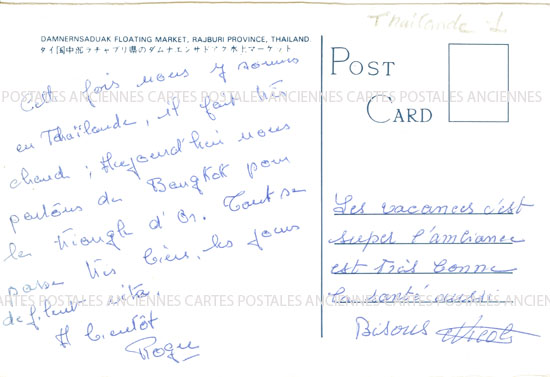 Thailande
DAMNERNSADUAK FLOATING MARKET, RAJBURI PROVINCE, THAILAND
タイ国中部ラチャブリ県のダムナエンサドアク水上マーケット
POST
CARD
Cette fois nous y sommes
en Thaïlande, il fait très
chaud ; Aujourd'hui nous
partons de Bangkok pour
le triangle d'Or. Tout se
passe très bien, les jours
défilent vite.
A bientôt
CARTES POSTALES ANCIENNES CARTES POSTALES ANCIENNES
Les vacances c'est
super l'ambiance
est très bonne
la santé aussi
Bisous Nicole
CARTES POSTALES ANCIENNES CARTES POSTALES ANCIENNES